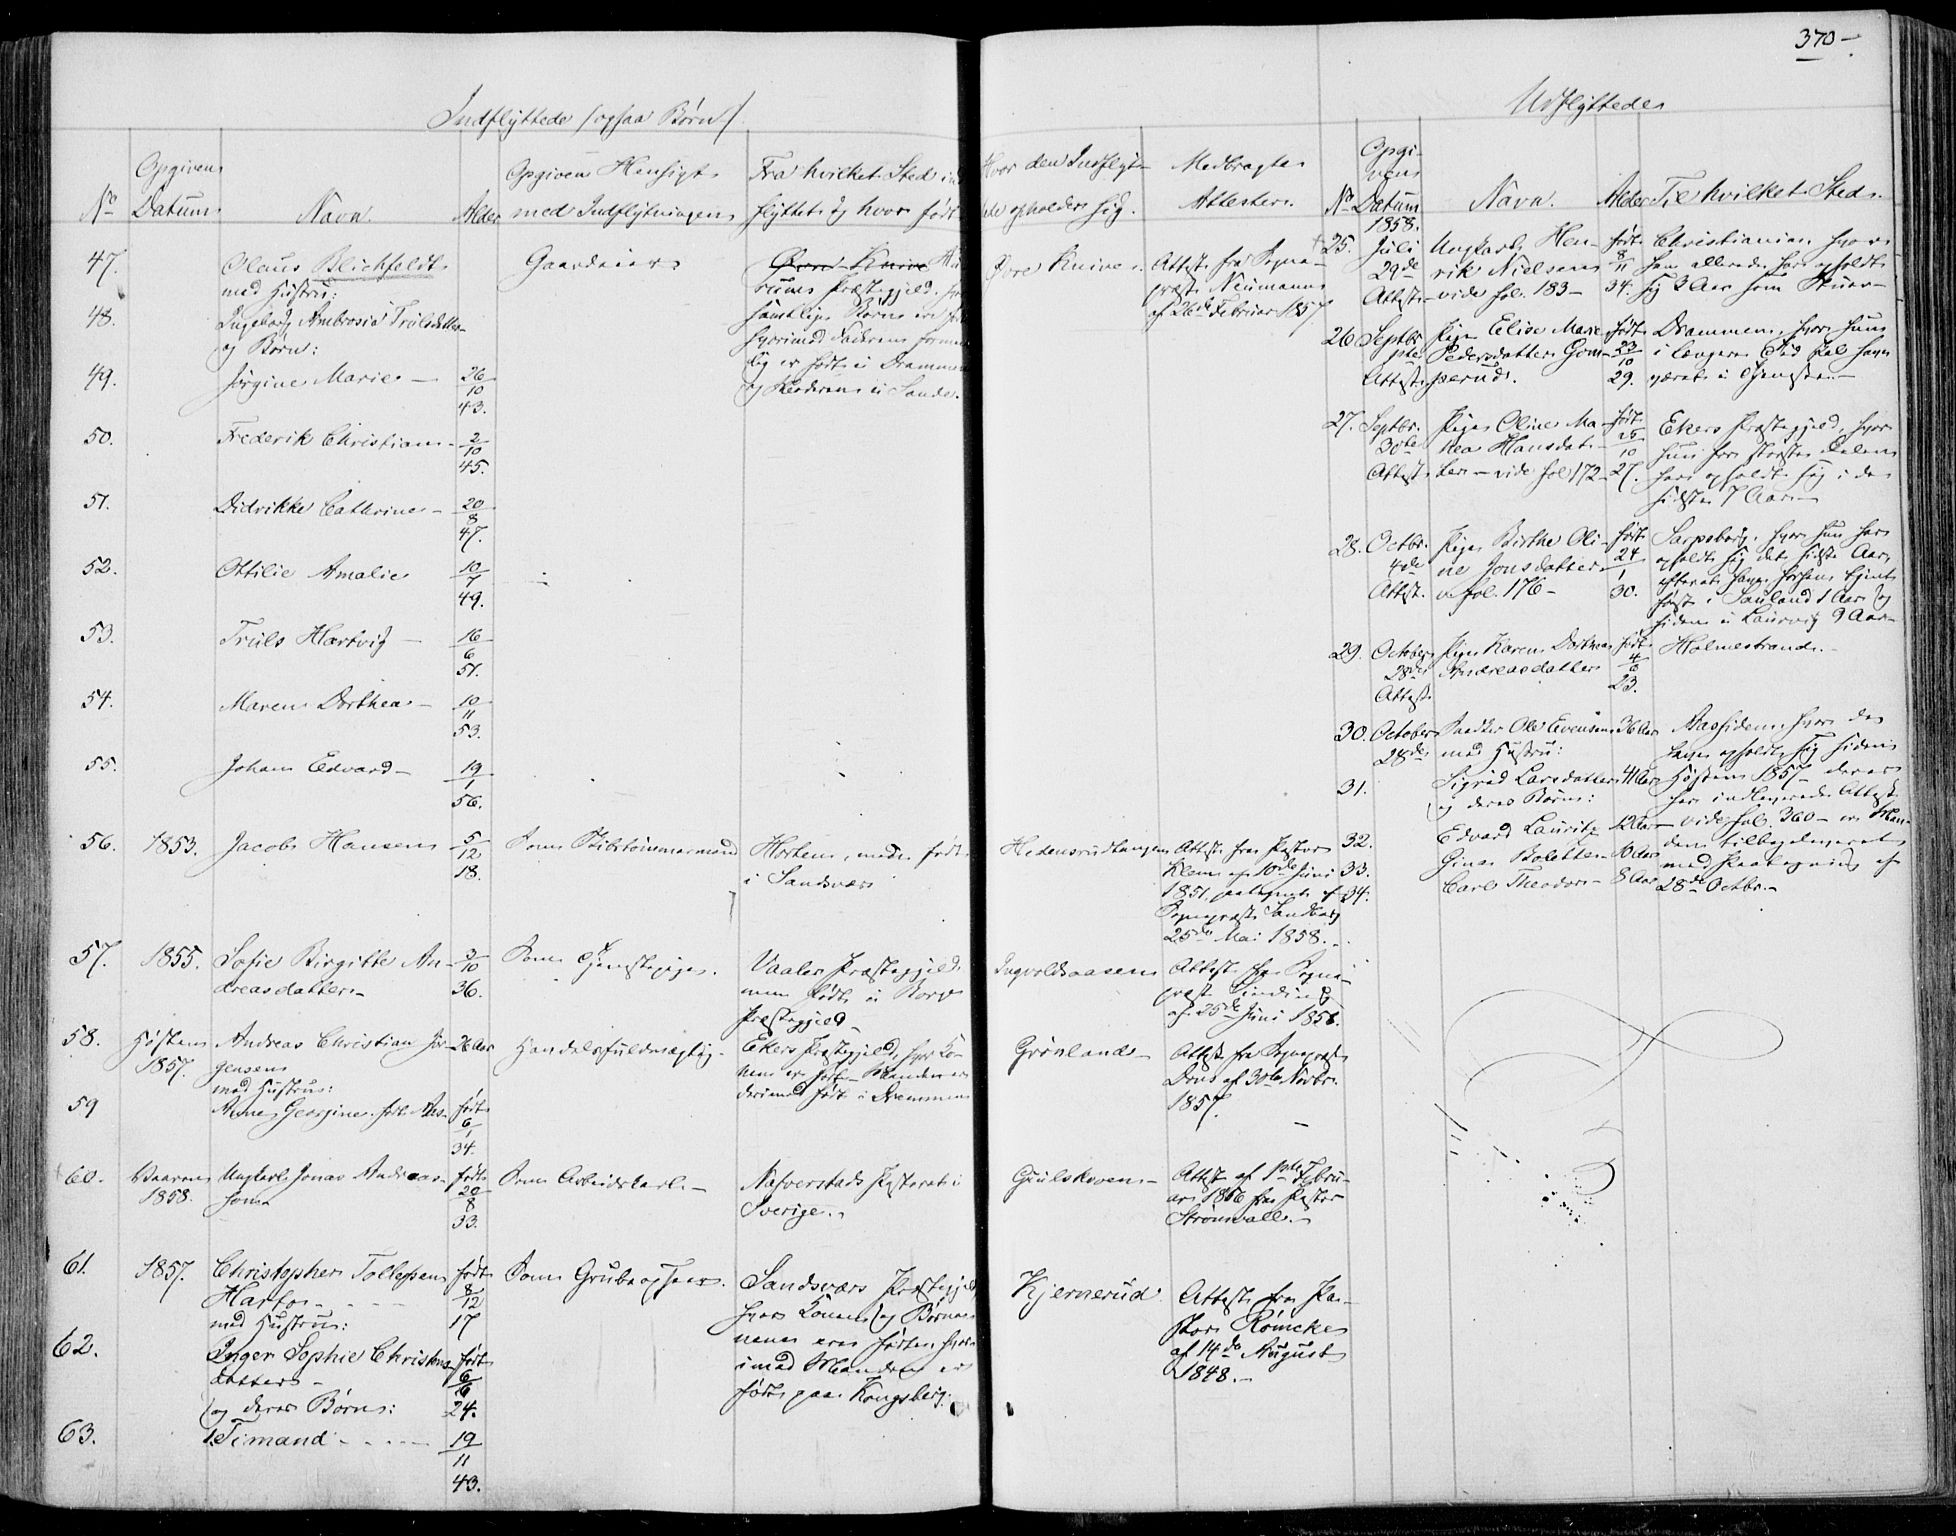 370
Indflyttede (ogsaa Børn)
Opgiven
No Datum
Navn.
Alder
Opgiven Hensigt
med Indflytningen
Fra hvilket Sted ind
flyttet og hvor født
Hvor den Indflyt
opholder sig.
Medbragte
Attester.
47.
Olaus Blichfeldt
med Hustru:
Gaardeier
Øvre Knive
Præstegjeld.
samtlige Børn ere
hvorimod Faderen
lig er født i Drammen
og Moderen i Sande.
Øvre Knive.
Attest fra Sogne-
præst Neumann
af 26de Februar 1857.
48.
Ingeborg Ambrosia Trulsdatter
og Børn:
49.
Jørgine Marie
26
10
43.
50.
Frederik Christian
2
10
45.
51.
Didrikke Cathrine
20
8
47.
52.
Ottilie Amalie
10
7
49.
53.
Truls Hartvig
16
6
51.
54.
Maren Dorthea
10
11
53.
55.
Johan Edvard
19
1
56.
56. 1853.
Jacob Hansen
5
12
18.
Som Skibstømmermand
Horten, men født
i Sandsvær
Hedensrudtangen
Attest fra Pastor
Klem af 10de Juni
1851, paategnet af
Sognepræst Sandberg
25de Mai 1858.
57. 1855.
Sofie Birgitte An-
dreasdatter
3
10
36.
Som Tjenestepige.
Vaaler Præstegjeld
men født i Borge
Præstegjeld
Ingvoldsaasen
Attest fra Sogne-
præst Sinding
af 25de Juni 1858.
58. Høsten
1857.
Andreas Christian Jør-
gensen
med Hustru:
26 Aar
Handelsfuldmægtig
Ekers Præstegjeld, hvor Ko-
nen er født Manden er
derimod født i Drammen
Grønland
Attest fra Sognepræst
Dons af 30te Novbr.
1857.
59
Anne Georgine
født
6
1
34.
60. Vaaren
1858.
Ungkarl Jonas Andreas-
son
født
20
8
33.
Som Arbeidskarl
Nafverstads Pastorat i
Sverige.
Gulskoven
Attest af 1ste Febru-
ar 1856 fra Pastor
Strømvall.
61. 1857.
Christopher Tollefsen
Harfos
med Hustru:
født
8
12
17
Som Grubeopseer.
Sandsværs Præstegjeld
hvor Konen og Børne-
nene ere fødte, hvor-
imod Manden er
født paa Kongsberg.
Kjernerud
Attest fra Pa-
stor Römcke
af 14de August
1848.
62.
Inger Sophie Christens-
datter
og deres Børn:
født
6
6
24.
63.
1. Timand
19
11
43.
Udflyttede
Opgi-
ven
No Datum
Navn.
Alder
Til hvilket Sted.
1858.
25. Juli
29de
Attest
Ungkarl Hen-
rik Nielsen
vide fol. 183
født
8
11
34.
Christiania, hvor
han allerede har opholdt
sig 3 Aar som
26. Septbr
Attest
Pige Elise Marie
Pedersdatter Gom-
perud.
født
23
10
29.
Drammen, hvor hun
i længere Tid skal have
været i Tjeneste
27. Septbr.
30te
Attest
Pige Oline Ma-
thea Hansdat-
ter vide fol 172
født
25
10
27.
Ekers Præstegjeld, hvor
hun for største Delen
har opholdt sig i de
sidste 7 Aar
28. Octbr.
4de
Attest.
Pige Birthe Oli-
ne Jonsdatter
v. fol. 176
født
24
1
30.
Sarpsborg, hvor hun har
opholdt sig det sidste Aar,
efterat have forhen tjent
først i Sauland 1 Aar og
siden i Laurvig 9 Aar
29. October
28de
Attest
Pige Karen Dorthea
Andreasdatter
født
4
6
23.
Holmestrand.
30. October
28de
Ole Evensen
med Hustru:
36 Aar
Aassiden, hvor de
have opholdt sig siden
Høsten 1857
har indleveret Attest
vide fol. 360 er
den tilbageleveret
med Paategning af
28de Octbr.
31.
Sigrid Larsdatter
og deres Børn:
41 Aar
32.
Edvard Lauritz
12 Aar
33.
Gina Bolette
10 Aar
34.
Carl Theodor
8 Aar